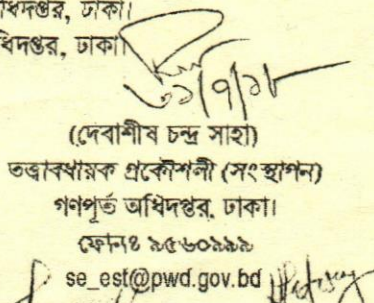 ধিদপ্তর, ঢাকা।
ধিদপ্তর, ঢাকা।
৩১/৭/১৮
(দেবাশীষ চন্দ্র সাহা)
তত্ত্বাবধায়ক প্রকৌশলী (সংস্থাপন)
গণপূর্ত অধিদপ্তর, ঢাকা।
ফোনঃ ৯৫৬০৯৯৯
se_est@pwd.gov.bd